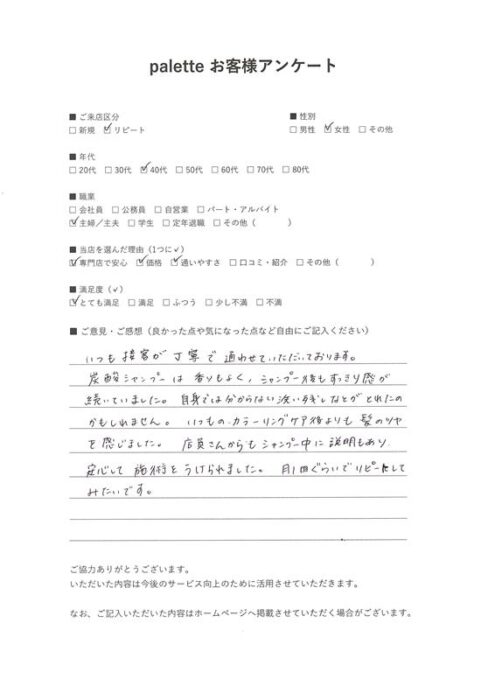 palette お客様アンケート
■ ご来店区分
□ 新規 ☑ リピート
■ 性別
□ 男性 ☑ 女性 □ その他
■ 年代
□ 20代 □ 30代 ☑ 40代 □ 50代 □ 60代 □ 70代 □ 80代
■ 職業
□ 会社員 □ 公務員 □ 自営業 □ パート・アルバイト
☑ 主婦／主夫 □ 学生 □ 定年退職 □ その他（ ）
■ 当店を選んだ理由（1つに✓）
☑ 専門店で安心 ☑ 価格 ☑ 通いやすさ □ 口コミ・紹介 □ その他（ ）
■ 満足度（✓）
☑ とても満足 □ 満足 □ ふつう □ 少し不満 □ 不満
■ ご意見・ご感想（良かった点や気になった点など自由にご記入ください）
いつも接客が丁寧で通わせていただいております。
炭酸シャンプーは香りもよく、シャンプー後もすっきり感が
続いていました。自身では分からない洗い残しなどがとれたの
かもしれません。いつものカラーリングケア後よりも髪のツヤ
を感じました。店員さんからもシャンプー中に説明もあり
安心して施術をうけられました。月1回ぐらいでリピートして
みたいです。
ご協力ありがとうございます。
いただいた内容は今後のサービス向上のために活用させていただきます。
なお、ご記入いただいた内容はホームページへ掲載させていただく場合がございます。